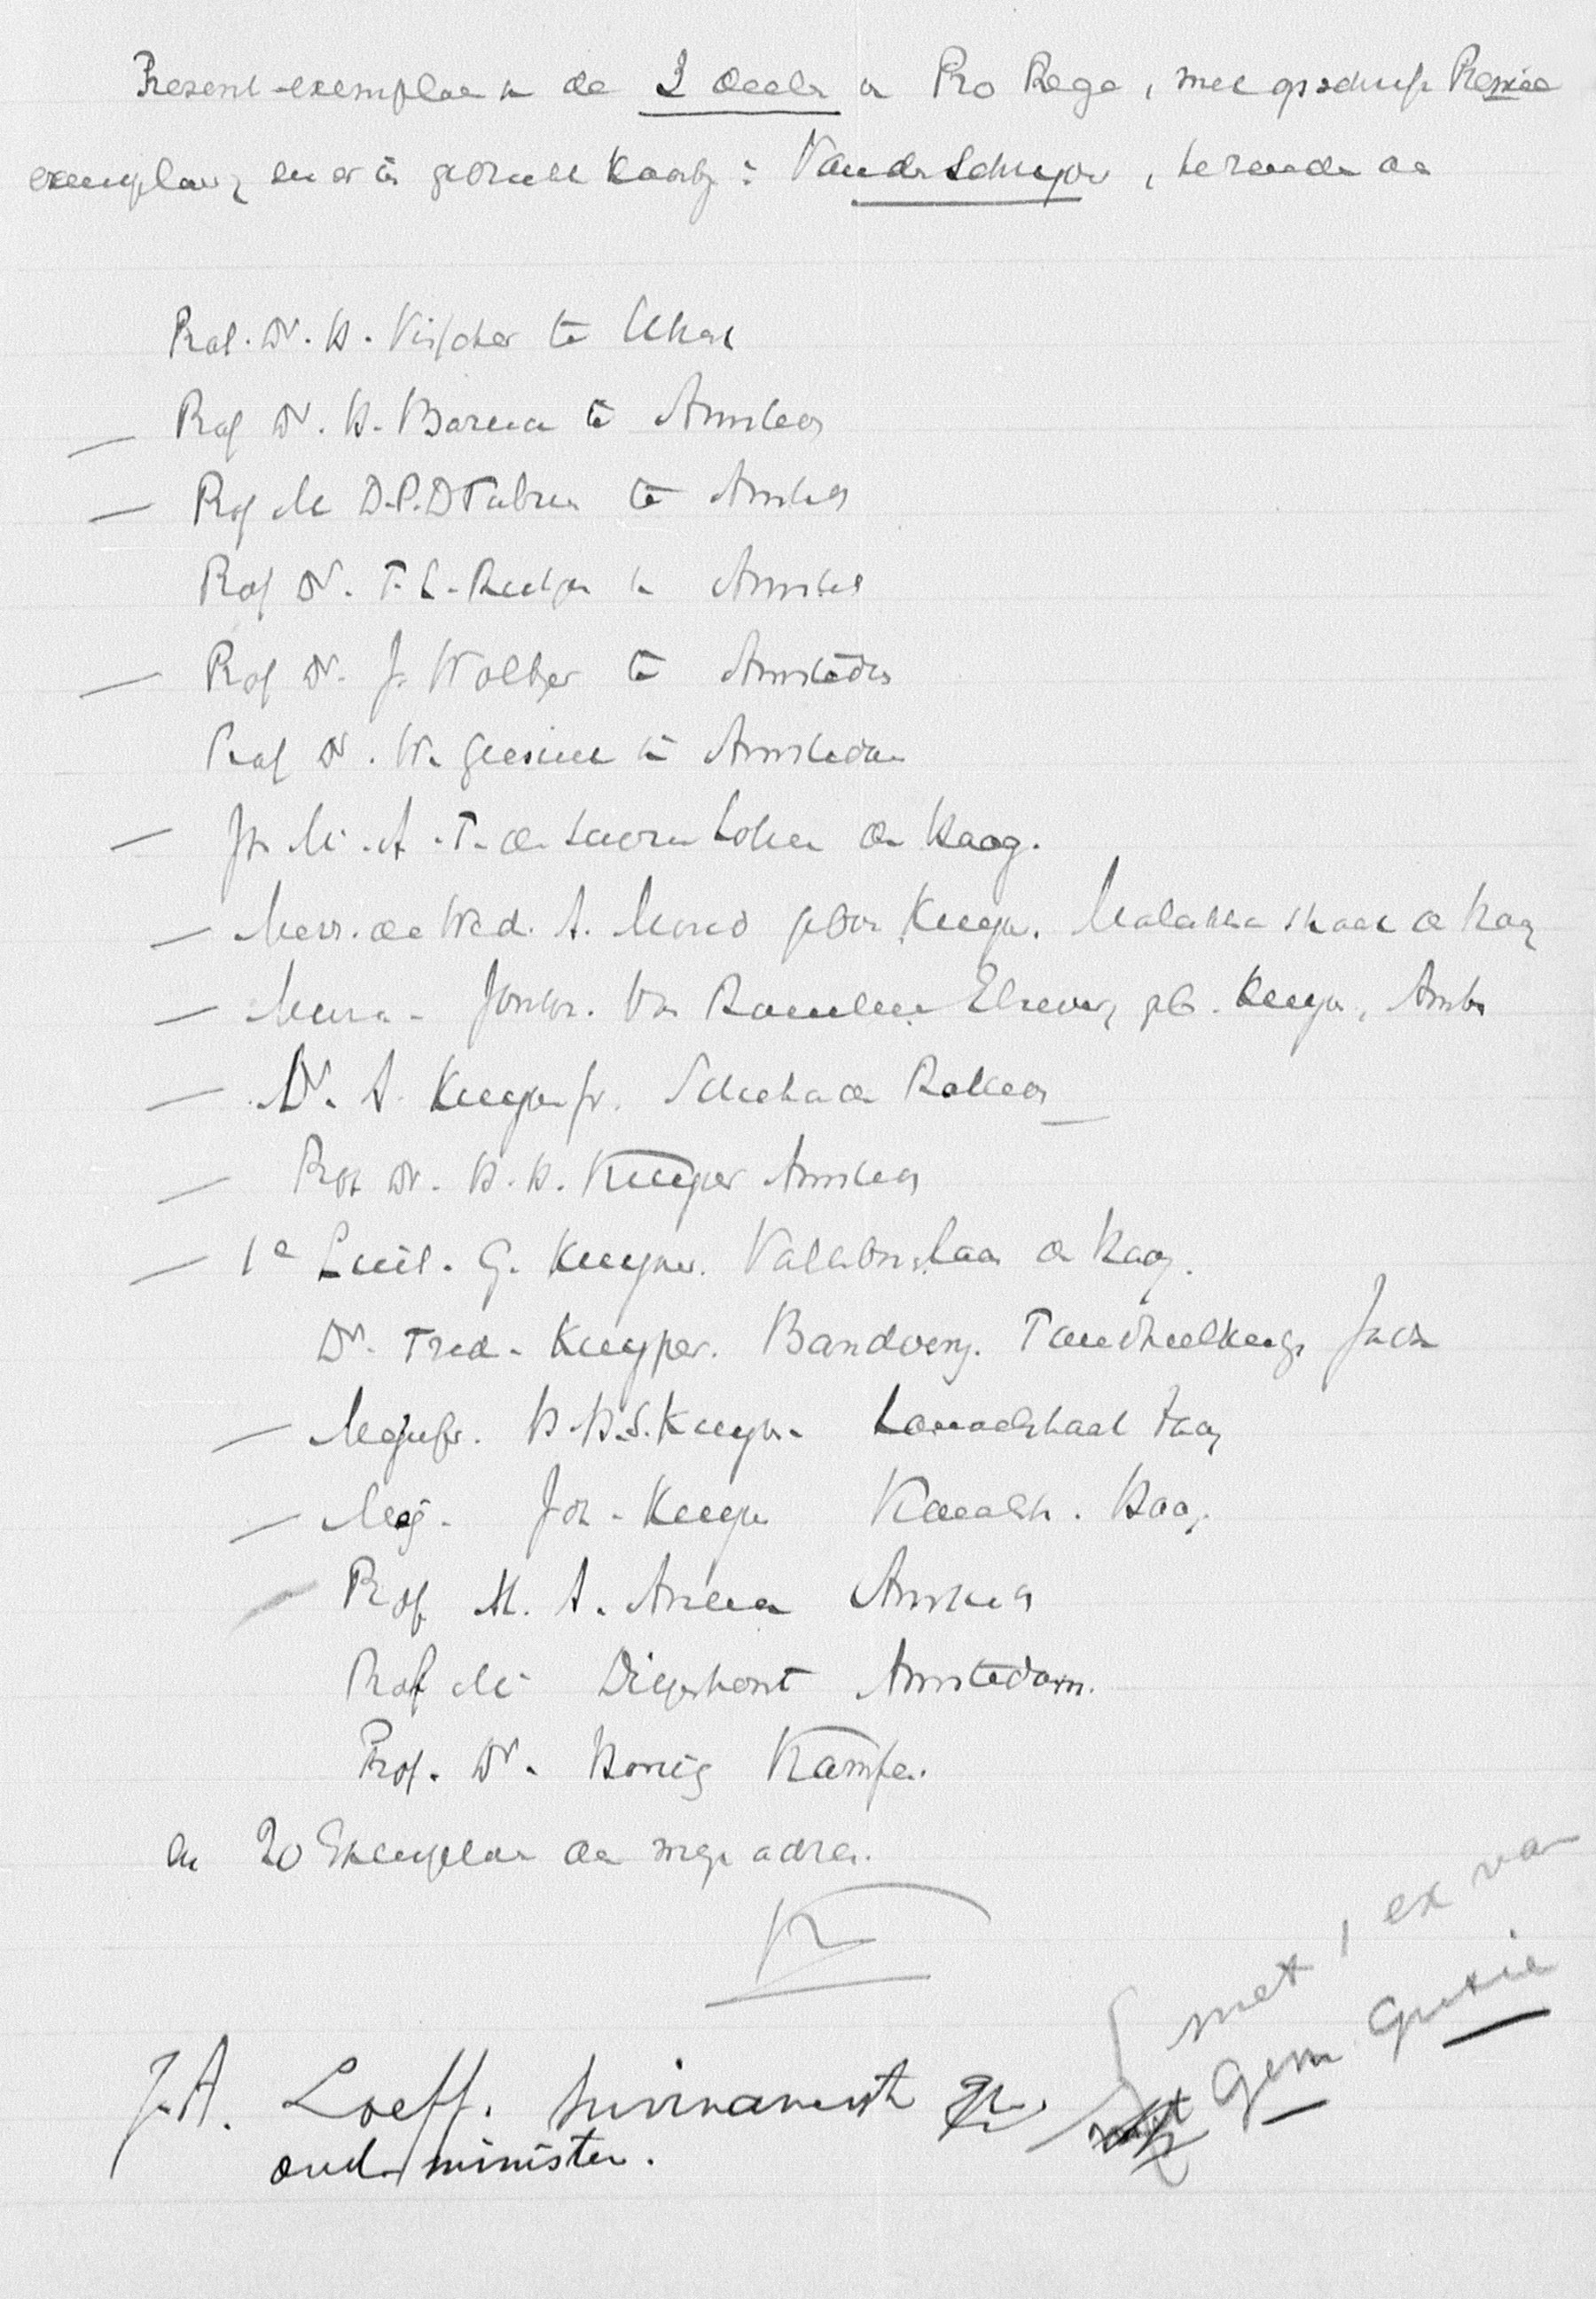 Present-exemplaar in de 3 deelen van Pro Rege, met opschrift Present
exemplaar, en er in gedrukt kaartje: Van den Schrijver, te zenden aan
Prof. Dr. H. Visscher te Utrecht
— Prof Dr. H. Bavinck te Amsterdam
— Prof Mr D.P.D Fabius te Amsterdam
Prof Dr. F. L. Rutgers te Amsterdam
— Prof Dr. J. Woltjer te Amsterdam
Prof Dr. W. Geesink te Amsterdam
— Jhr Mr. A. F. de Savornin Lohman den Haag.
— Mevr. de Wed. A. Kuyper. Malakka straat den Haag
— Mevr. Van Elzevier, geb. Kuyper, Amst
— Dr. A. Kuyper jr. Rotterdam
— Prof Dr. H. H. Kuyper Amsterdam
— 1e Luit. G. Kuyper. den Haag.
Dr. Fred. Kuyper. Bandoeng. Java
— Mejufr. H. H. S. Kuyper. Kanaalstraat Haag
— Mej. Joh. Kuyper Kanaalstr. Haag.
Prof Mr. A. Anema Amsterdam
Prof Mr Diepenhorst Amsterdam.
Prof. Dr. Honig Kampen.
en 20 Exemplaren aan mijn adres.
K
met 1 ex van
Gem Gratie
J.A. Loeff. Surinamestr
oud minister.